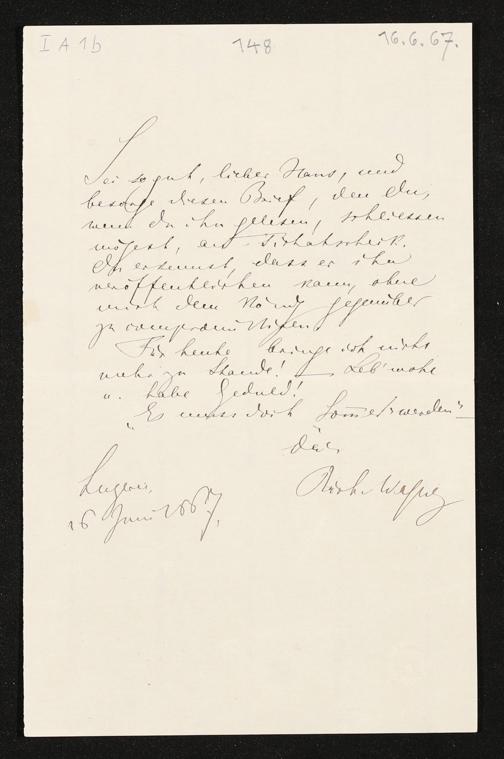 I A 1b
148
16.6.67.
Sei so gut, lieber Hans, und
besorge diesen Brief, den du,
wenn du ihn gelesen, schliessen
mögest, an Tichatscheck.
Du ersiehst, dass er ihn
veröffentlichen kann, ohne
mich dem König gegenüber
zu compromittiren.
Für heute bringe ich nichts
mehr zu Stande! — Leb' wohl
u. habe Geduld!
"Es muss doch Sommer werden" —
Dein
Rich. Wagner
Luzern,
16 Juni 1867.